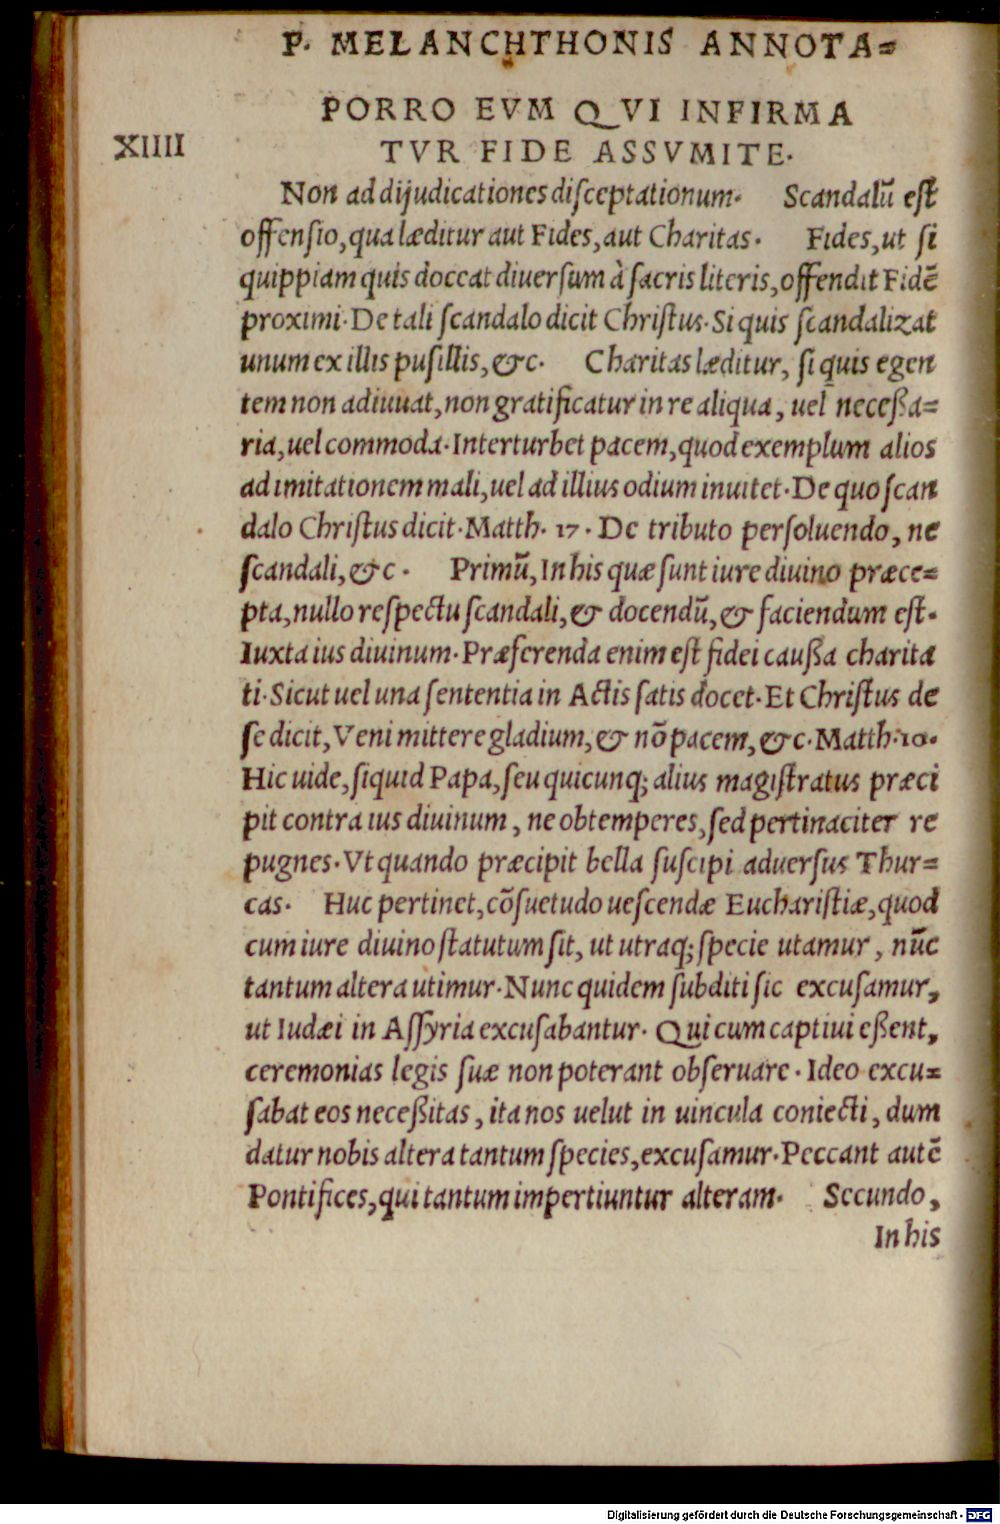 P. MELANCHTHONIS ANNOTA=
PORRO EVM QVI INFIRMA
XIIII
TVR FIDE ASSVMITE.
Non ad dijudicationes disceptationum. Scandalũ est
offensio, qua læditur aut Fides, aut Charitas. Fides, ut si
quippiam quis doceat diuersum à sacris literis, offendit Fidẽ
proximi. De tali scandalo dicit Christus. Si quis scandalizat
unum ex illis pusillis, &c. Charitas læditur, si quis egen
tem non adiuuat, non gratificatur in re aliqua, uel neceßa=
ria, uel commoda. Interturbet pacem, quod exemplum alios
ad imitationem mali, uel ad illius odium inuitet. De quo scan
dalo Christus dicit. Matth. 17. De tributo persoluendo, ne
scandali, &c. Primũ, In his quæ sunt iure diuino præce=
pta, nullo respectu scandali, & docendũ, & faciendum est.
Iuxta ius diuinum. Præferenda enim est fidei caußa charita
ti. Sicut uel una sententia in Actis satis docet. Et Christus de
se dicit, Veni mittere gladium, & nõ pacem, &c. Matth. 10.
Hic uide, siquid Papa, seu quicunq; alius magistratus præci
pit contra ius diuinum, ne obtemperes, sed pertinaciter re
pugnes. Vt quando præcipit bella suscipi aduersus Thur=
cas. Huc pertinet, cõsuetudo uescendæ Eucharistiæ, quod
cum iure diuino statutum sit, ut utraq; specie utamur, nũc
tantum altera utimur. Nunc quidem subditi sic excusamur,
ut Iudæi in Assyria excusabantur. Qui cum captiui eßent,
ceremonias legis suæ non poterant obseruare. Ideo excu=
sabat eos neceßitas, ita nos uelut in uincula coniecti, dum
datur nobis altera tantum species, excusamur. Peccant autẽ
Pontifices, qui tantum impertiuntur alteram. Secundo,
In his
Digitalisierung gefördert durch die Deutsche Forschungsgemeinschaft - DFG